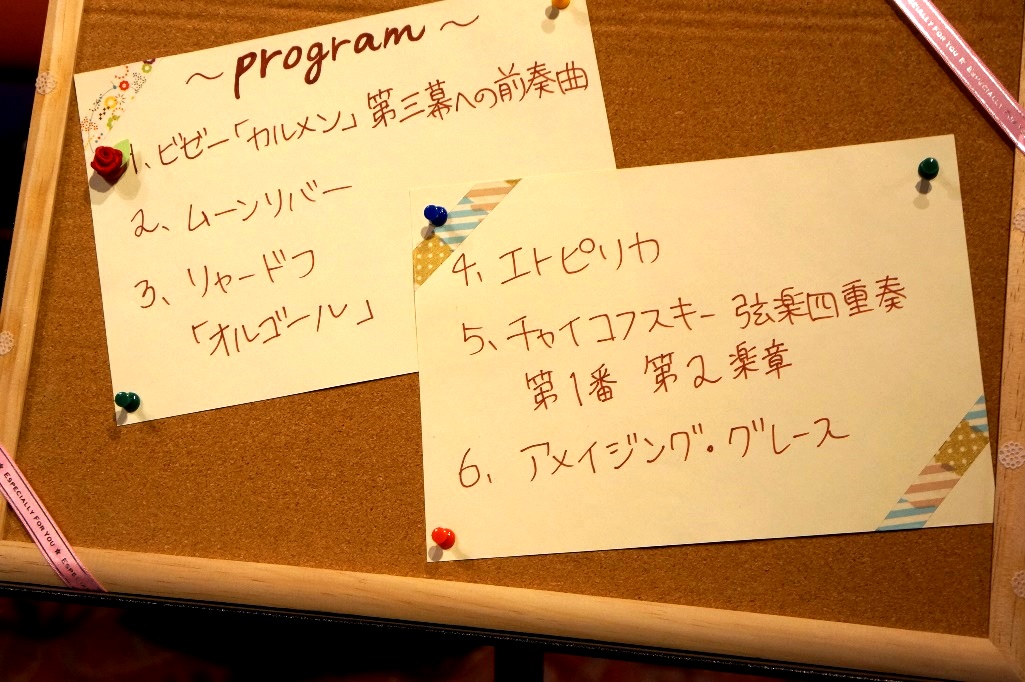 ～program～
1、ビゼー「カルメン」第三幕への前奏曲
2、ムーンリバー
3、リャードフ
「オルゴール」
4、エトピリカ
5、チャイコフスキー 弦楽四重奏
第1番 第2楽章
6、アメイジング・グレース
ESPECIALLY FOR YOU ★ ESPECIALLY
ESPECIALLY FOR YOU ★ ESPE